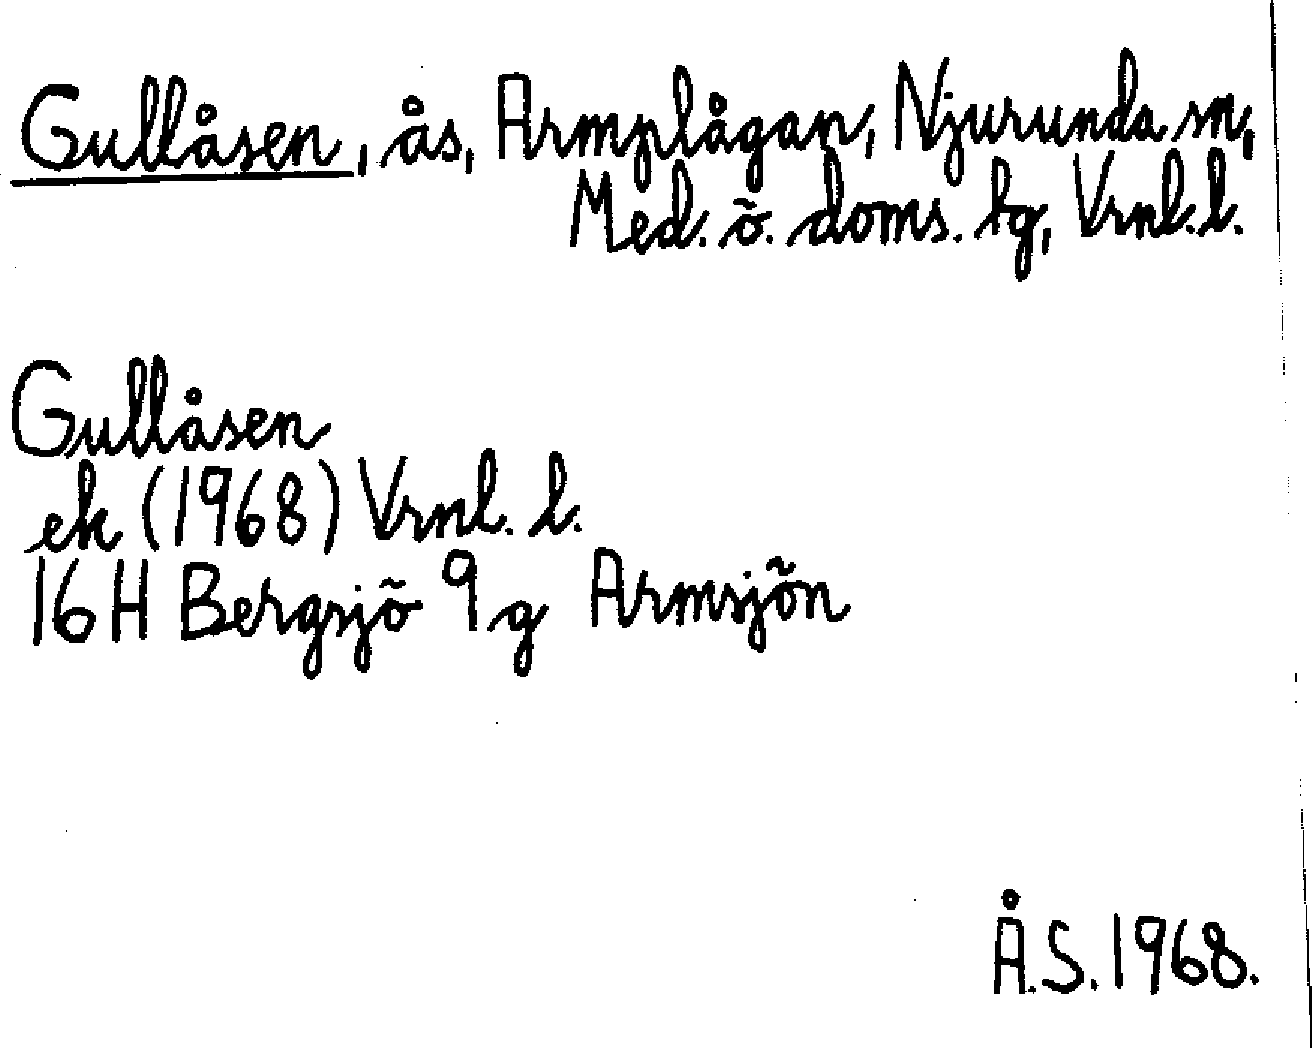 Gullåsen, ås, Armplågan, Njurunda sn,
Med. ö. doms. tg, Vrnl. l.
Gullåsen
ek (1968) Vrnl. l.
16H Bergsjö 9g Armsjön
Å.S. 1968.